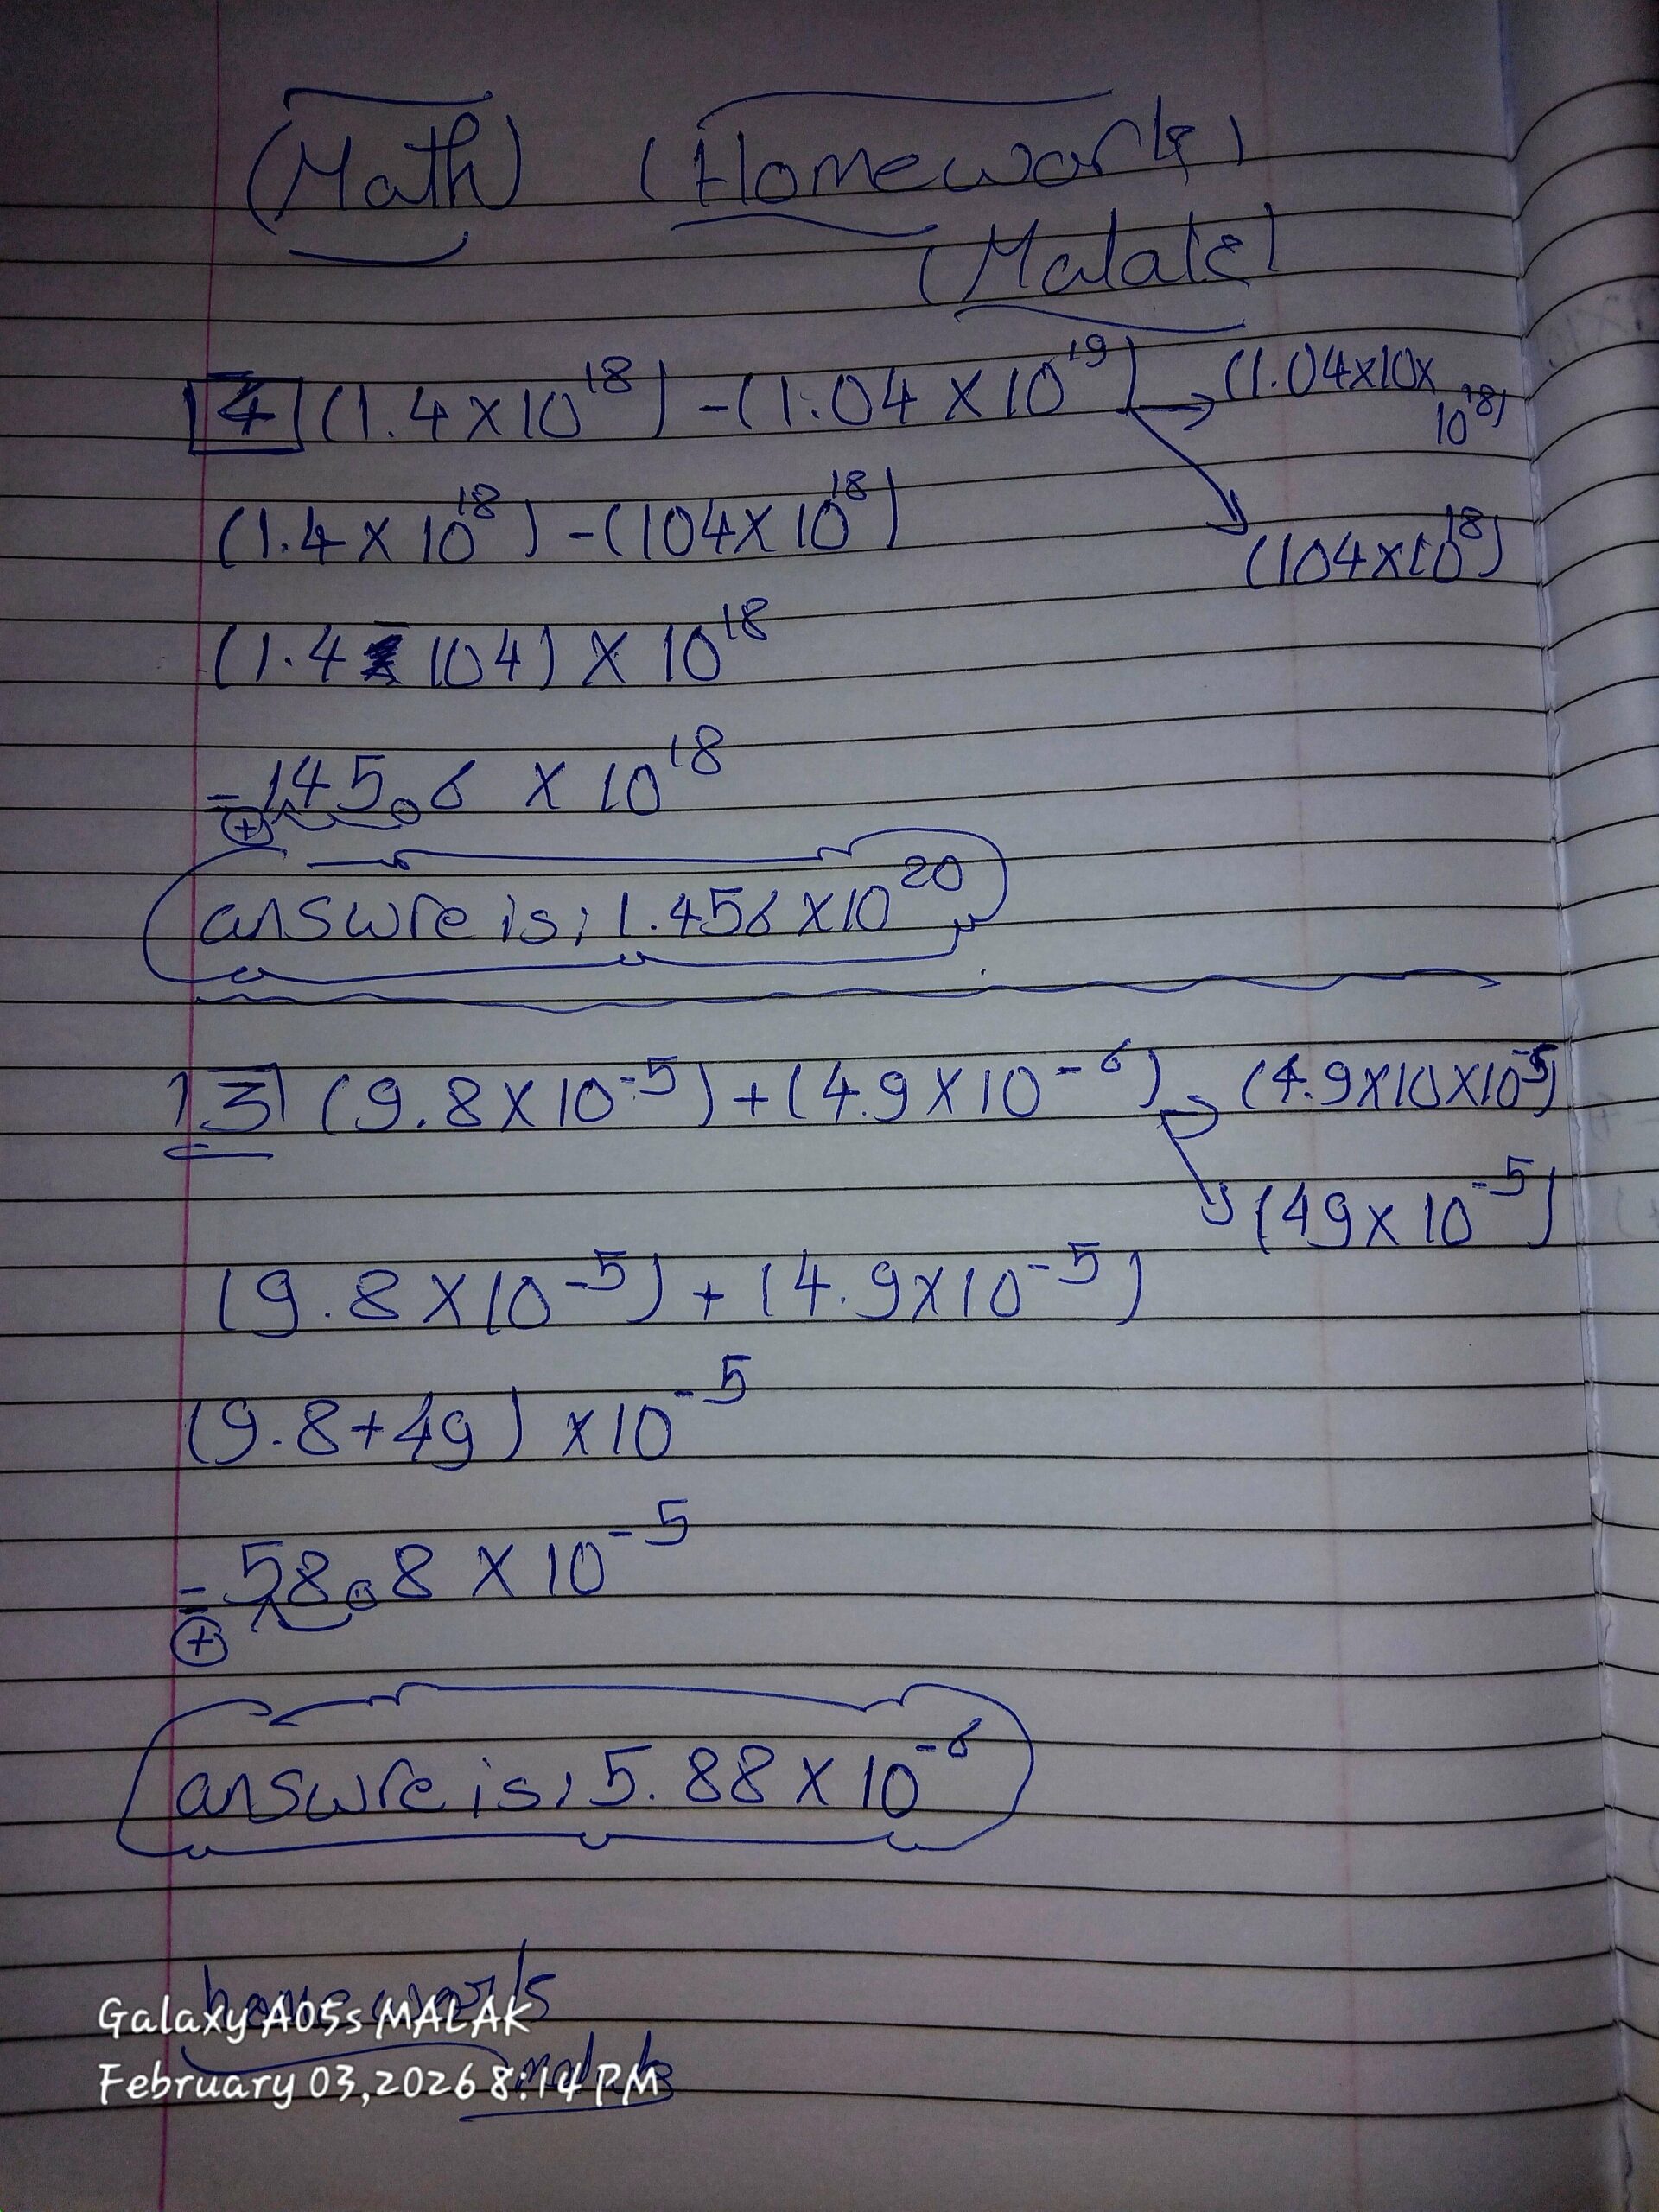 (Math) (Homework)
(Malak)
4 (1.4×10¹⁸) -(1.04×10¹⁹) → (1.04×10×
10¹⁸)
(1.4×10¹⁸) -(104×10¹⁸)
(104×10¹⁸)
(1.4 - 104) × 10¹⁸
=145.6 × 10¹⁸
(+)
answre is; 1.456×10²⁰
13 (9.8×10⁻⁵)+(4.9×10⁻⁶) → (4.9×10×10⁻⁵)
(49×10⁻⁵)
(9.8×10⁻⁵)+(4.9×10⁻⁵)
(9.8+49) ×10⁻⁵
=58.8 × 10⁻⁵
(+)
answre is; 5.88×10⁻⁶
home work
malak
Galaxy A05s MALAK
February 03,2026 8:14 PM